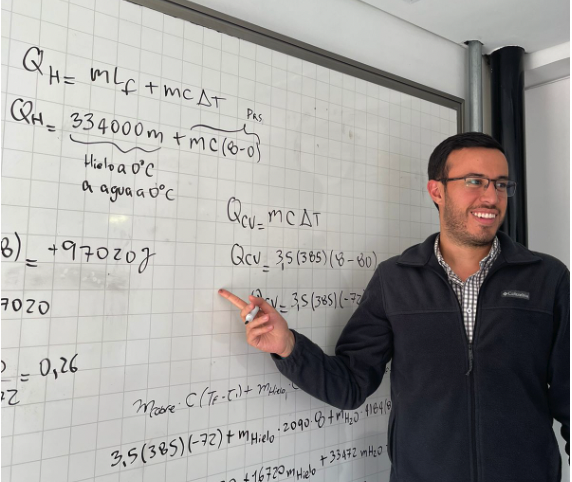 Q_H = mL_f + mcΔT
Q_H = 334000m + mc(8-0)
Hielo a 0°C
a agua a 0°C
Q_CU = mcΔT
Q_CU = 3,5(385)(8-80)
8) = +97020J
= 3,5(385)(-72
7020
= 0,26
m_cobre · C(T_f - T_i) + m_Hielo
3,5(385)(-72) + m_Hielo · 2090·8 + m_H2O · 4184(8
+16720 m_Hielo + 33472 m_H2O
Columbia